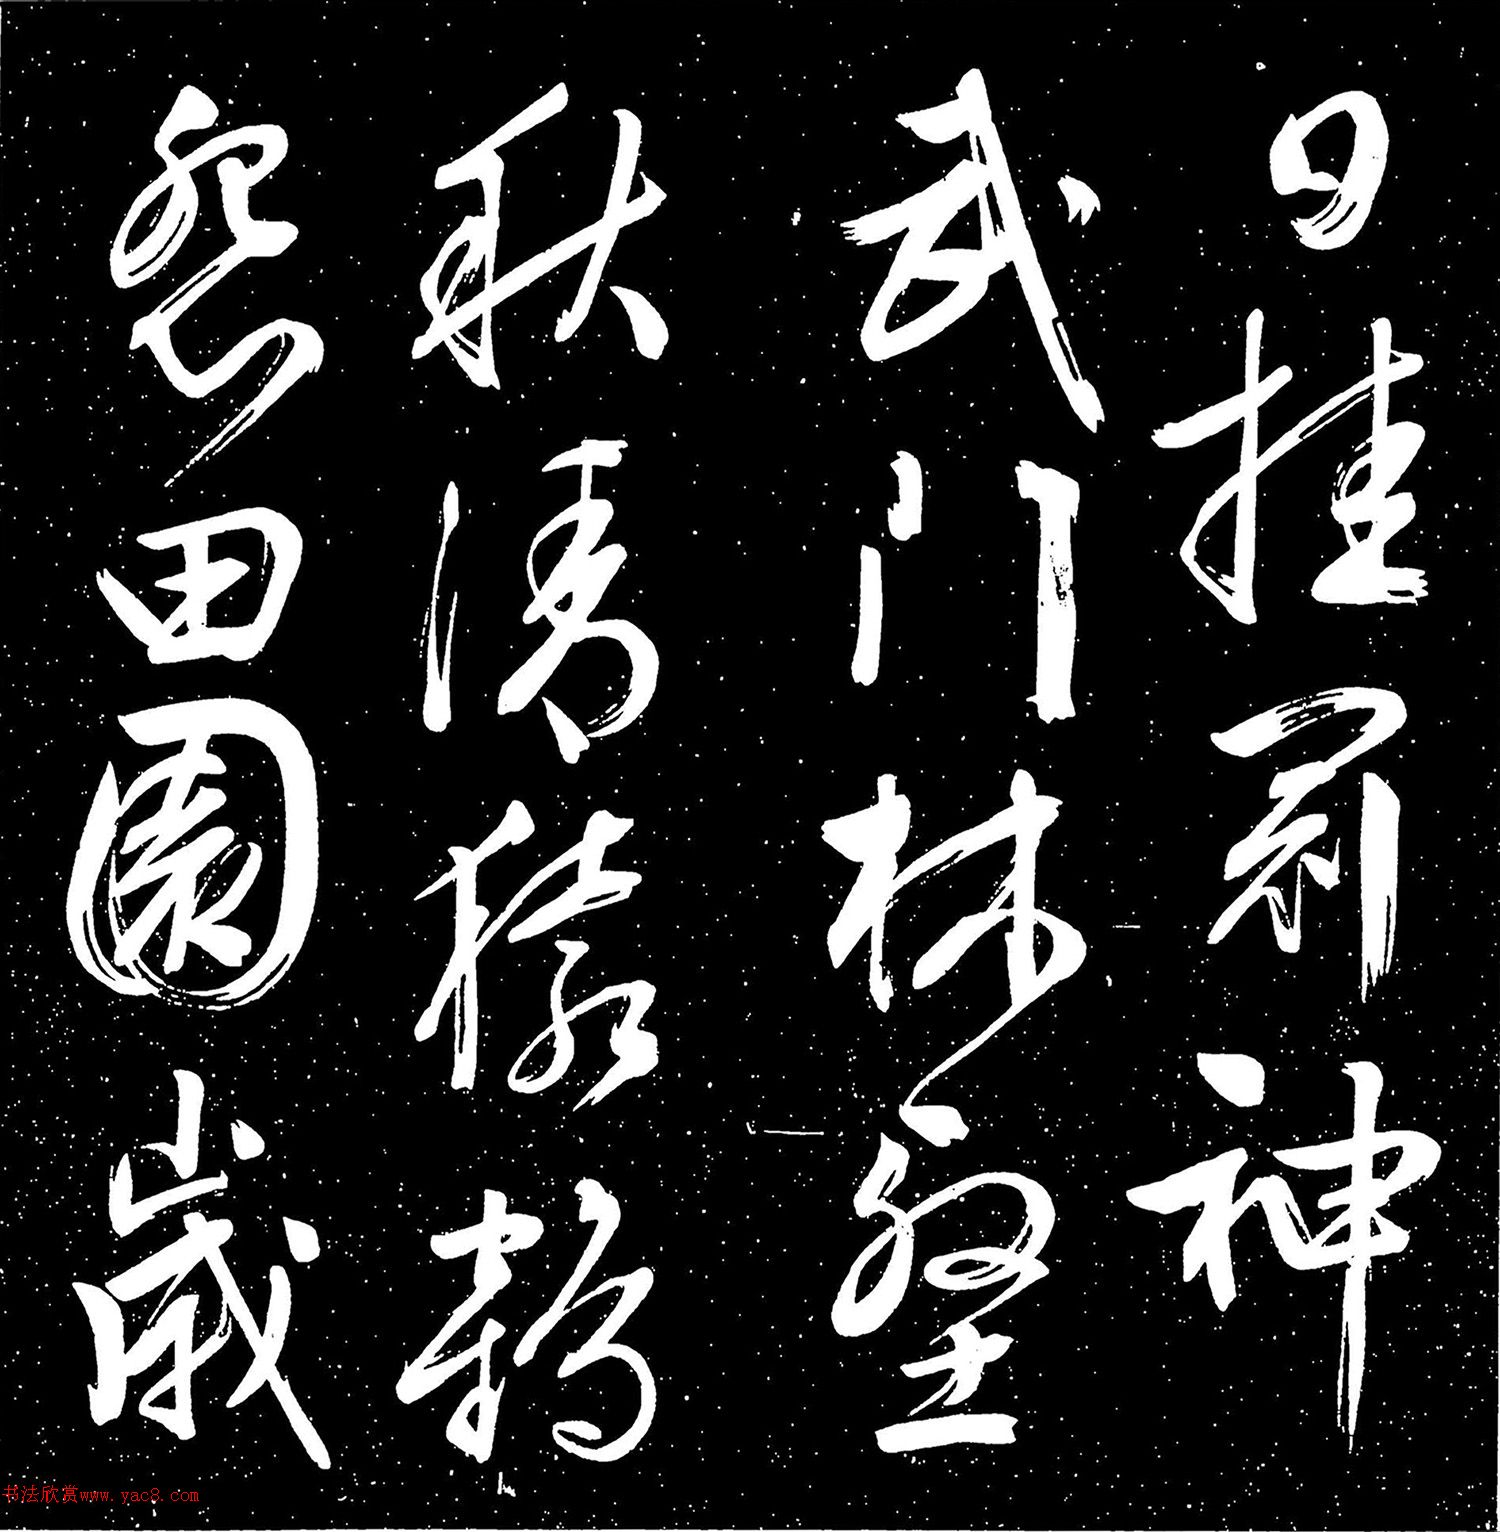 日挂冠神
武門林壑
秋清猿鶴
怨田園歲
书法欣赏www.yac8.com